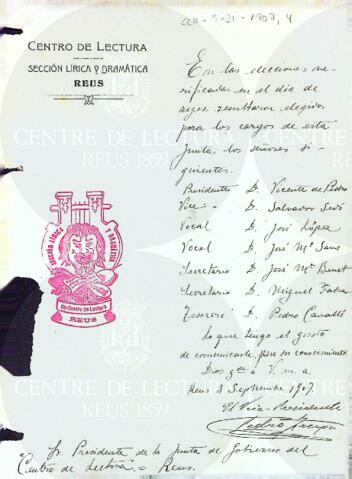 CCR-3-21-1907, 4
CENTRO DE LECTURA
SECCIÓN LÍRICA Y DRAMÁTICA
REUS
En las elecciones ve-
rificadas en el día de
ayer resultaron elegidos
para los cargos de esta
Junta, los señores si-
guientes.
Presidente D. Vicente de Pedro
Vice- " D. Salvador Sedó
Vocal D. José López
Vocal D. José Mª Sans
Secretario D. José Mª Benet
Secretario D. Miguel
Tesorero D. Pedro Cavallé
Lo que tengo el gusto
de comunicarle para su conocimiento
Dios gue á V. m. a.
Reus, Septiembre 1907.
El Vice-Presidente
Pedro
Sr Presidente de la Junta de Gobierno del
Centro de Lectura = Reus.
SECCIÓN LÍRICA Y DRAMÁTICA
Del Centro de Lectura
REUS
CENTRE DE LECTURA
REUS 1859
CENTRE DE LECTURA
REUS 1859